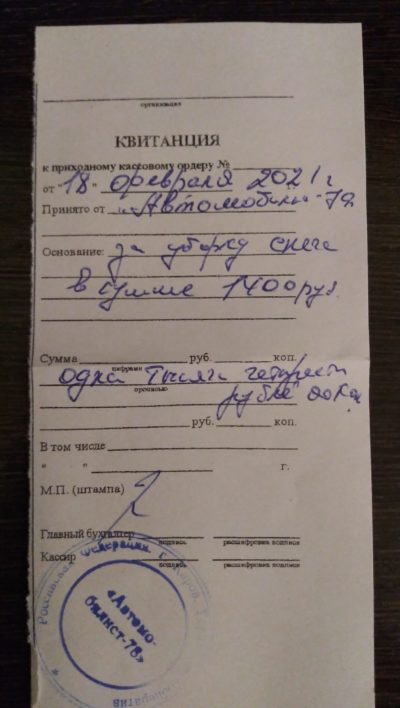 организация
КВИТАНЦИЯ
к приходному кассовому ордеру №
от "18" февраля 2021 г
Принято от "Автомобилист-78
Основание: за уборку снега
в сумме 1400 руб.
Сумма руб. коп.
цифрами
одна тысяча четыреста
прописью
рублей 00 коп
руб. коп.
В том числе
" " г.
М.П. (штампа)
Главный бухгалтер
подпись расшифровка подписи
Кассир
подпись расшифровка подписи
Российская Федерация, г. Киров
«Автомо-
билист-78»